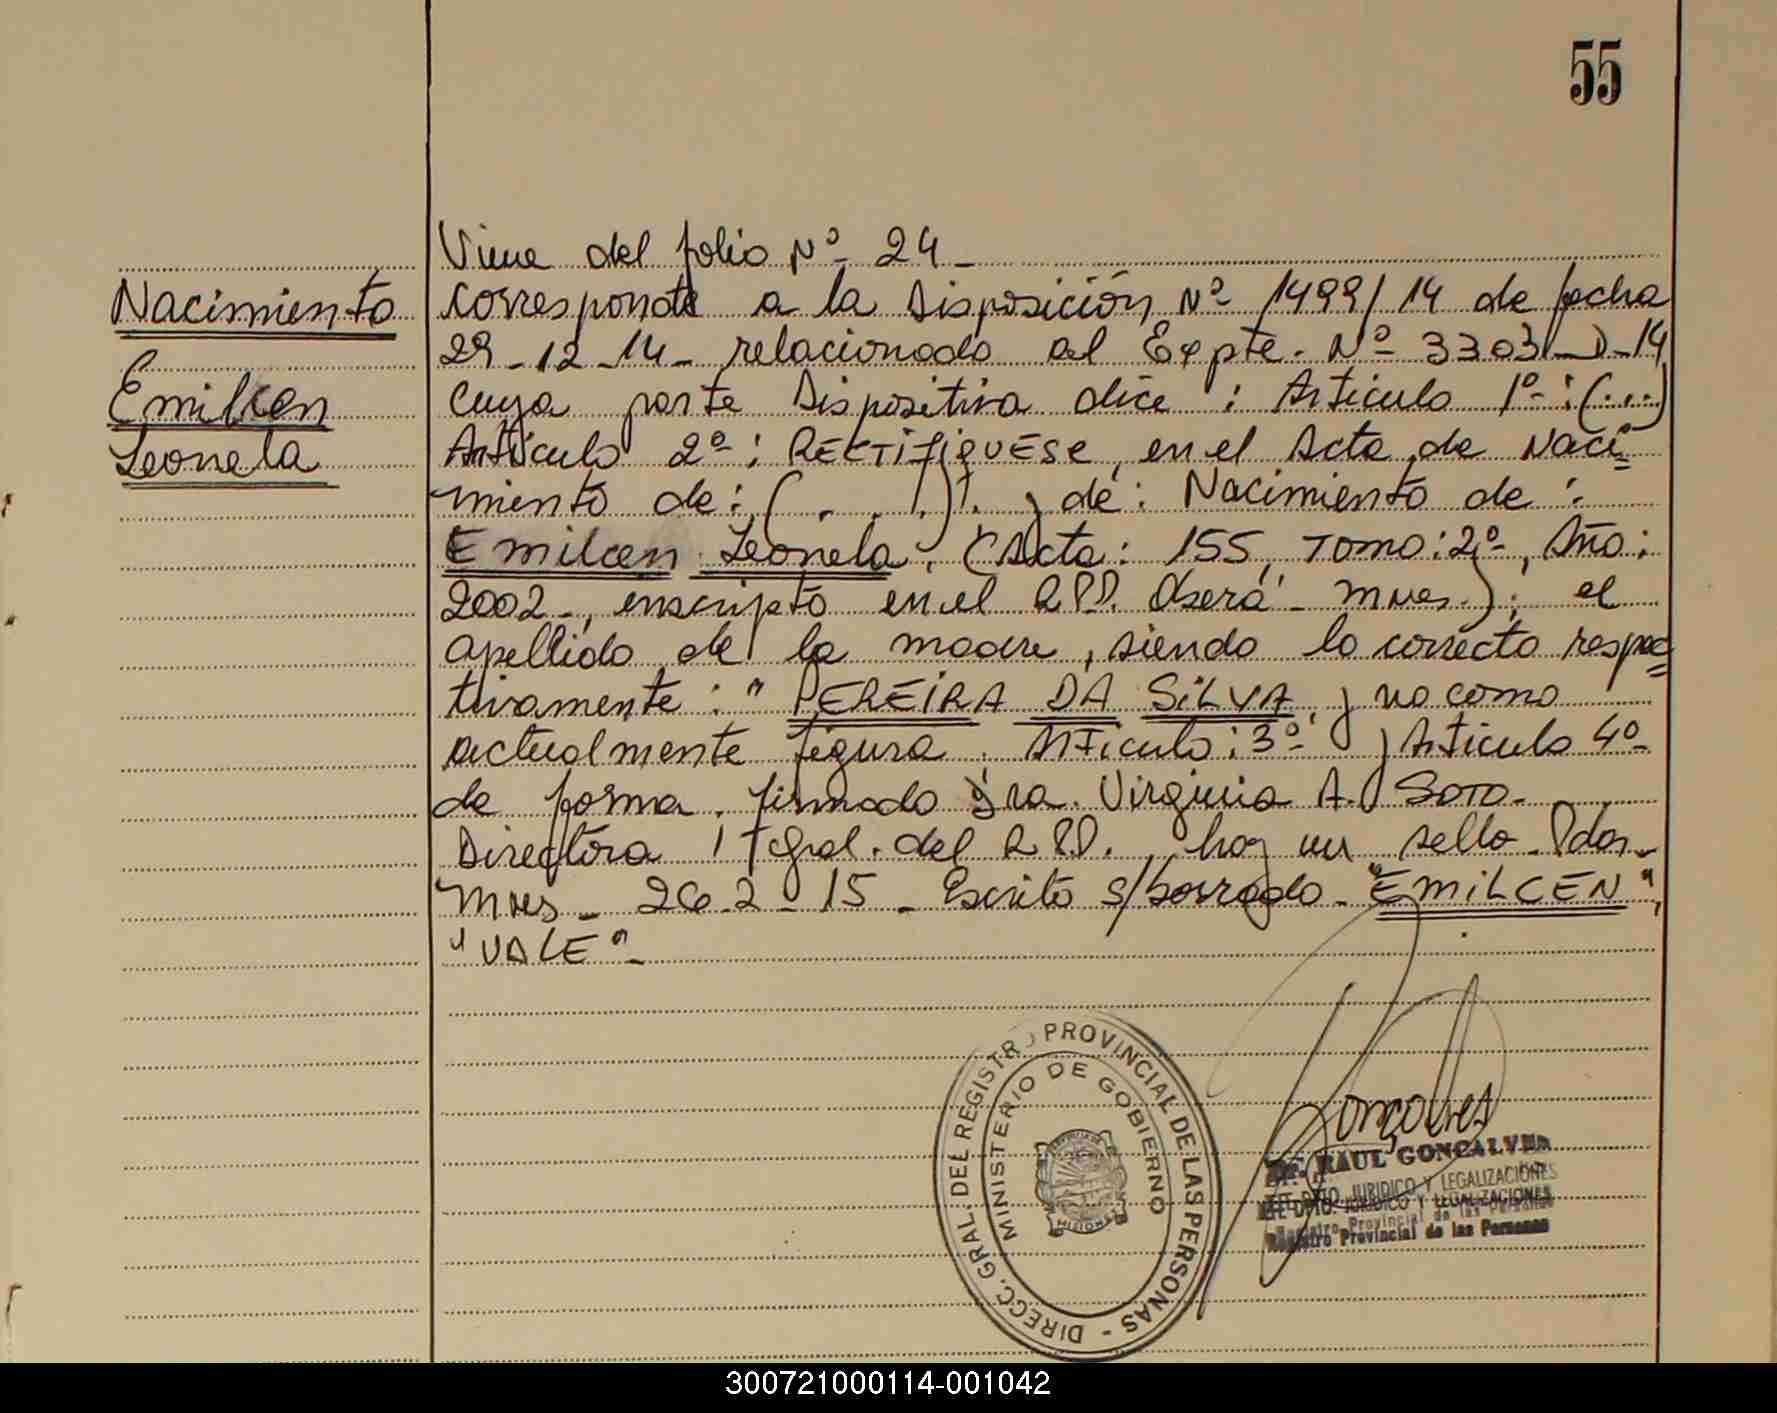 55
Viene del folio Nº 24_
Nacimiento
Emilcen
Leonela
corresponde a la Disposición Nº 1499/14 de fecha
29-12-14- relacionado al Expte. Nº 3303-D-14
cuya parte Dispositiva dice: Artículo 1º: (...)
Artículo 2º: RECTIFIQUESE, en el Acta de Naci=
miento de: (. . .). y de: Nacimiento de:
Emilcen Leonela. (Acta: 155, Tomo: 2º, Año:
2002-, inscripto en el R.P.P. Oberá- Mnes.); el
apellido de la madre, siendo lo correcto respec=
tivamente: "PEREIRA DA SILVA, y no como
actualmente figura. Artículo: 3º y Artículo 4º
de forma. firmado Sra. Virginia A. SOTO-
Directora Gral. del R.P.P., hay un sello- Pdas-
Mnes- 26-2-15- Escrito s/borrado- "EMILCEN",
"VALE"-
DIRECC. GRAL. DEL REGISTRO PROVINCIAL DE LAS PERSONAS -
MINISTERIO DE GOBIERNO
MISIONES
Dr. RAUL GONCALVES
JEFE DPTO. JURIDICO Y LEGALIZACIONES
Registro Provincial de las Personas
300721000114-001042